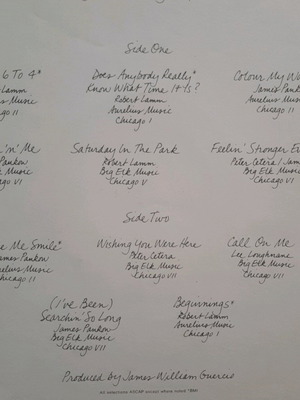 Side One
6 To 4*
Lamm
Music
II
Does Anybody Really*
Know What Time It Is?
Robert Lamm
Aurelius Music
Chicago I
Colour My
James Pank
Aurelius Music
Chicago II
'n' Me
Pankow
Music
VI
Saturday In The Park
Robert Lamm
Big Elk Music
Chicago V
Feelin' Stronger
Peter Cetera / Jam
Big Elk Music
Chicago VI
Side Two
e Me Smile*
ames Pankow
relius Music
hicago II
Wishing You Were Here
Peter Cetera
Big Elk Music
Chicago VII
Call On Me
Lee Loughnane
Big Elk Music
Chicago VII
(I've Been)
Searchin' So Long
James Pankow
Big Elk Music
Chicago VII
Beginnings*
Robert Lamm
Aurelius Music
Chicago I
Produced by James William Guercio
All selections ASCAP except where noted *BMI